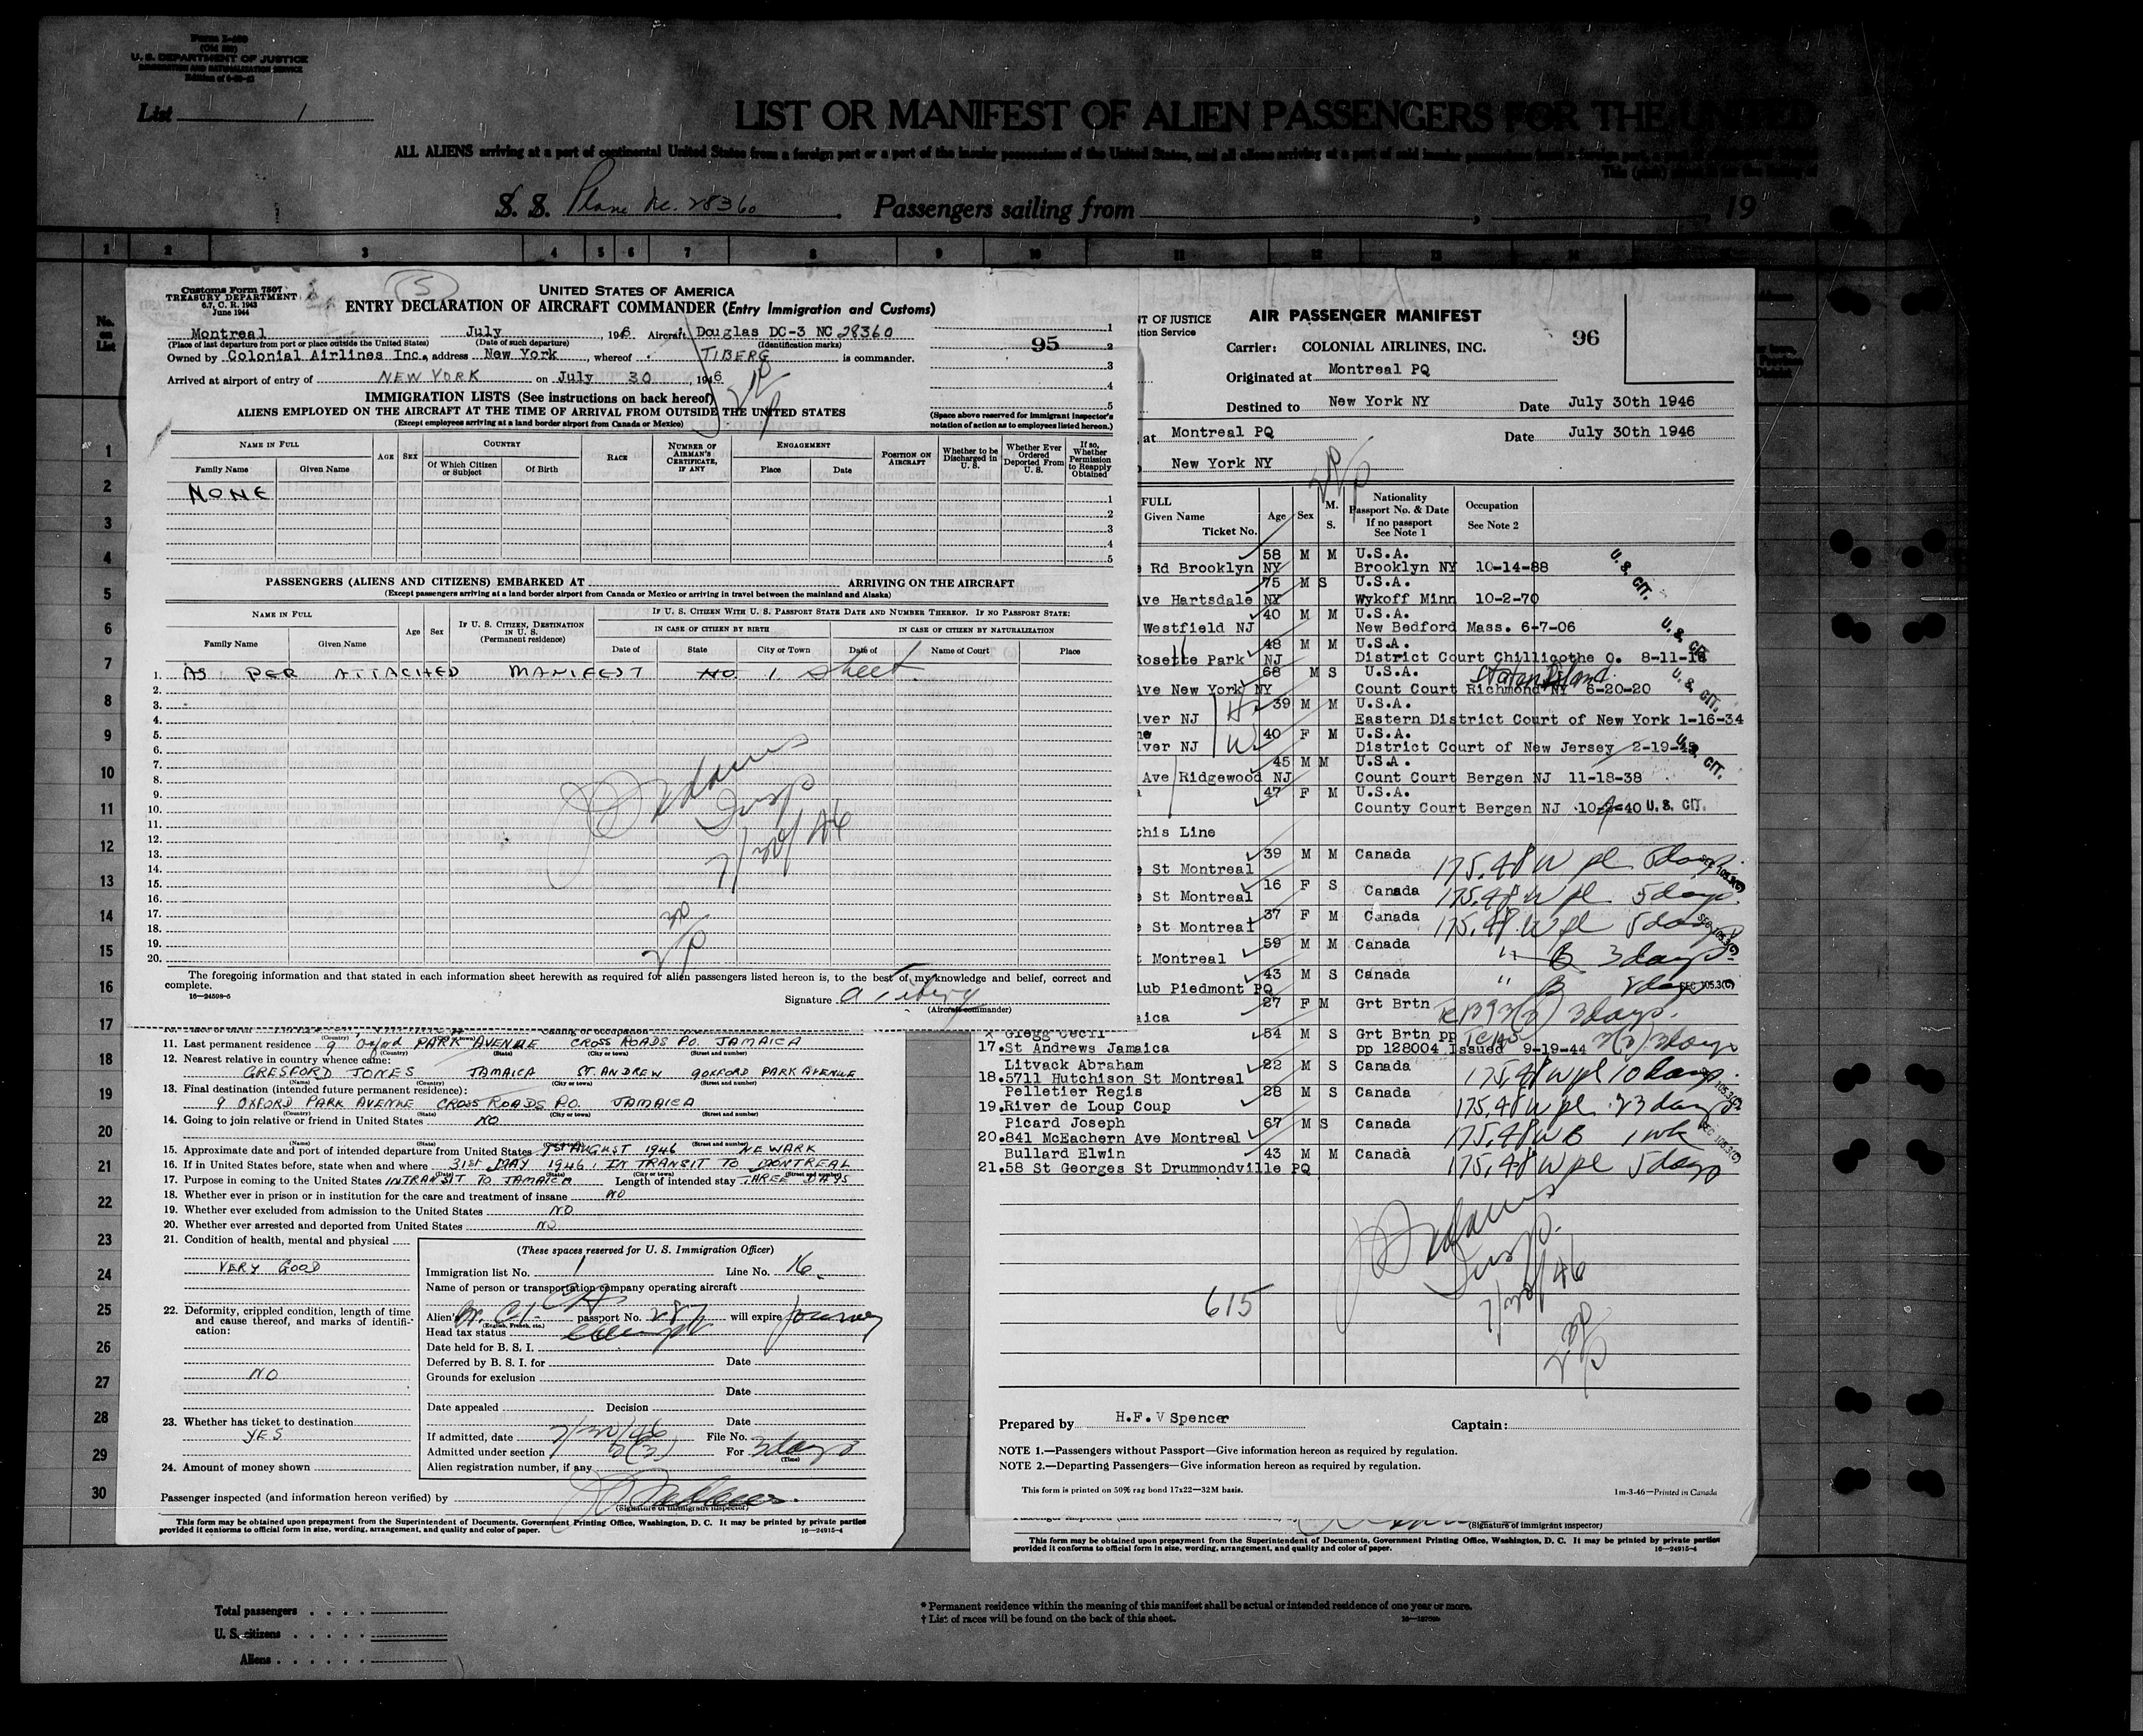 Form I-400
(Old 500)
U. S. DEPARTMENT OF JUSTICE
IMMIGRATION AND NATURALIZATION SERVICE
List 1
LIST OR MANIFEST OF ALIEN PASSENGERS FOR THE UNITED
ALL ALIENS arriving at a port of continental United States from a foreign port or a port of the insular possessions of the United States, and all aliens arriving at a port of said insular possessions
S. S. Plane Nc. 28360. Passengers sailing from , 19
1 2 3 4 5 6 7 8 9 10 11 12 13 14
No. on List
1
2
3
4
5
6
7
8
9
10
11
12
13
14
15
16
17
18
19
20
21
22
23
24
25
26
27
28
29
30
Customs Form 7507
TREASURY DEPARTMENT
6.7, C. R. 1943
June 1944
5
UNITED STATES OF AMERICA
ENTRY DECLARATION OF AIRCRAFT COMMANDER (Entry Immigration and Customs)
Montreal July , 1946 Aircraft Douglas DC-3 NC 28360
(Place of last departure from port or place outside the United States) (Date of such departure) (Identification marks)
Owned by Colonial Airlines Inc., address New York , whereof TIBERG is commander.
Arrived at airport of entry of NEW YORK on July 30 , 1946
1
95 2
3
4
5
(Space above reserved for immigrant inspector's notation of action as to employees listed hereon.)
IMMIGRATION LISTS (See instructions on back hereof)
ALIENS EMPLOYED ON THE AIRCRAFT AT THE TIME OF ARRIVAL FROM OUTSIDE THE UNITED STATES
(Except employees arriving at a land border airport from Canada or Mexico)
NAME IN FULL AGE SEX COUNTRY RACE NUMBER OF AIRMAN'S CERTIFICATE, IF ANY ENGAGEMENT POSITION ON AIRCRAFT Whether to be Discharged in U. S. Whether Ever Ordered Deported From U. S. If so, Whether Permission to Reapply Obtained
Family Name Given Name Of Which Citizen or Subject Of Birth Place Date
NONE 1
2
3
4
5
PASSENGERS (ALIENS AND CITIZENS) EMBARKED AT ARRIVING ON THE AIRCRAFT
(Except passengers arriving at a land border airport from Canada or Mexico or arriving in travel between the mainland and Alaska)
NAME IN FULL Age Sex IF U. S. CITIZEN, DESTINATION IN U. S. (Permanent residence) IF U. S. CITIZEN WITH U. S. PASSPORT STATE DATE AND NUMBER THEREOF. IF NO PASSPORT STATE:
IN CASE OF CITIZEN BY BIRTH IN CASE OF CITIZEN BY NATURALIZATION
Family Name Given Name Date of State City or Town Date of Name of Court Place
1. AS PER ATTACHED MANIFEST NO 1 sheet
2.
3.
4.
5.
6.
7.
8.
9.
10.
11.
12.
13.
14.
15.
16.
17.
18.
19.
20.
Insp
7/30/46
The foregoing information and that stated in each information sheet herewith as required for alien passengers listed hereon is, to the best of my knowledge and belief, correct and complete.
16—24598-5
Signature
(Aircraft commander)
11. Last permanent residence 9 Oxford PARK AVENUE CROSS ROADS P.O. JAMAICA
(Country) (State) (City or town) (Street and number)
12. Nearest relative in country whence came:
GRESFORD JONES JAMAICA ST. ANDREW 9 OXFORD PARK AVENUE
(Name) (Country) (City or town) (Street and number)
13. Final destination (intended future permanent residence):
9 OXFORD PARK AVENUE CROSS ROADS P.O. JAMAICA
(Country) (State) (City or town) (Street and number)
14. Going to join relative or friend in United States NO
(Name) (State) (City or town) (Street and number)
15. Approximate date and port of intended departure from United States 1st AUGUST 1946 NEWARK
16. If in United States before, state when and where 31st MAY 1946, IN TRANSIT TO MONTREAL
(Date) (State) (City or town)
17. Purpose in coming to the United States IN TRANSIT TO JAMAICA Length of intended stay THREE DAYS
18. Whether ever in prison or in institution for the care and treatment of insane NO
19. Whether ever excluded from admission to the United States NO
20. Whether ever arrested and deported from United States NO
21. Condition of health, mental and physical
VERY GOOD
22. Deformity, crippled condition, length of time and cause thereof, and marks of identification:
NO
23. Whether has ticket to destination
YES
24. Amount of money shown
(These spaces reserved for U. S. Immigration Officer)
Immigration list No. 1 Line No. 16
Name of person or transportation company operating aircraft
Alien's passport No. 287 will expire
(English, French, etc.)
Head tax status
Date held for B. S. I.
Deferred by B. S. I. for Date
Grounds for exclusion
Date
Date appealed Decision
Date
If admitted, date 7/30/46 File No.
Admitted under section 3(3) For 3 days
(Time)
Alien registration number, if any
Passenger inspected (and information hereon verified) by
(Signature of immigrant inspector)
This form may be obtained upon prepayment from the Superintendent of Documents, Government Printing Office, Washington, D. C. It may be printed by private parties provided it conforms to official form in size, wording, arrangement, and quality and color of paper.
16—24915-4
NT OF JUSTICE
tion Service
AIR PASSENGER MANIFEST
96
Carrier: COLONIAL AIRLINES, INC.
Originated at Montreal PQ
Destined to New York NY Date July 30th 1946
at Montreal PQ Date July 30th 1946
New York NY
FULL
Given Name
Ticket No.
Age Sex M. S. Nationality Passport No. & Date If no passport See Note 1 Occupation See Note 2
58 M M U.S.A.
Rd Brooklyn NY Brooklyn NY 10-14-88 U.S. CIT.
75 M S U.S.A.
ve Hartsdale NY Wykoff Minn 10-2-70
40 M M U.S.A.
Westfield NJ New Bedford Mass. 6-7-06
48 M M U.S.A.
Roselle Park NJ District Court Chillicothe O. 8-11-18 U.S. CIT.
68 M S U.S.A. Staten Island
Ave New York NY Count Court Richmond NY 6-20-20 U.S. CIT.
39 M M U.S.A.
ver NJ H Eastern District Court of New York 1-16-34
40 F M U.S.A.
ver NJ W District Court of New Jersey 2-19- U.S. CIT.
45 M M U.S.A.
Ave Ridgewood NJ Count Court Bergen NJ 11-18-38
47 F M U.S.A.
County Court Bergen NJ 10- -40 U.S. CIT.
this Line
39 M M Canada 175.48 W pl 5 days
St Montreal
16 F S Canada 175.48 W pl 5 days
St Montreal
37 F M Canada 175.48 W pl 5 days
St Montreal
59 M M Canada " B 3 days
Montreal
43 M S Canada " B days SEC 105.3(C)
lub Piedmont PQ
27 F M Grt Brtn 3 days
ica
Gregg Cecil 54 M S Grt Brtn pp
17. St Andrews Jamaica pp 128004 Issued 9-19-44 3 days
Litvack Abraham 22 M S Canada
18. 5711 Hutchison St Montreal 175.48 W pl 10 days
Pelletier Regis 28 M S Canada
19. River de Loup Coup 175.48 W pl 23 days
Picard Joseph 67 M S Canada
20. 841 McEachern Ave Montreal 175.48 W B 1 wk
Bullard Elwin 43 M M Canada
21. 58 St Georges St Drummondville PQ 175.48 W pl 5 days
Insp.
7/30/46
615
Prepared by H.F.V Spencer Captain:
NOTE 1.—Passengers without Passport—Give information hereon as required by regulation.
NOTE 2.—Departing Passengers—Give information hereon as required by regulation.
This form is printed on 50% rag bond 17x22—32M basis. 1m-3-46—Printed in Canada
(Signature of immigrant inspector)
This form may be obtained upon prepayment from the Superintendent of Documents, Government Printing Office, Washington, D. C. It may be printed by private parties provided it conforms to official form in size, wording, arrangement, and quality and color of paper.
16—24915-4
Total passengers
U. S. citizens
Aliens
* Permanent residence within the meaning of this manifest shall be actual or intended residence of one year or more.
† List of races will be found on the back of this sheet.